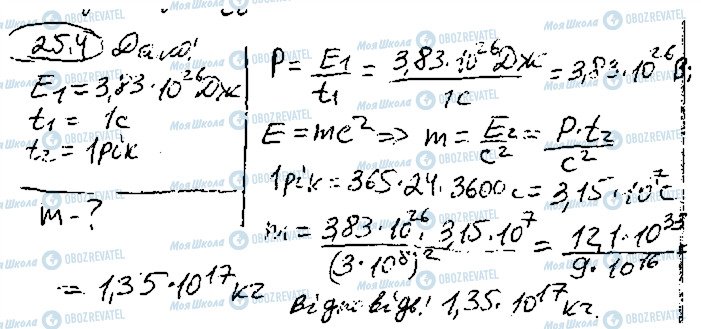 25.4 Дано:
E₁ = 3,83·10²⁶ Дж
t₁ = 1с
t₂ = 1рік
m - ?
P = E₁/t₁ = 3,83·10²⁶ Дж/1с = 3,83·10²⁶ В;
E = mc² => m = E₂/c² = P·t₂/c²
1рік = 365·24·3600с = 3,15·10⁷с
m = 383·10²⁶·315·10⁷/(3·10⁸)² = 12,1·10³³/9·10¹⁶
= 1,35·10¹⁷кг
Відповідь: 1,35·10¹⁷кг.
Моя Школа
OBOZREVATEL